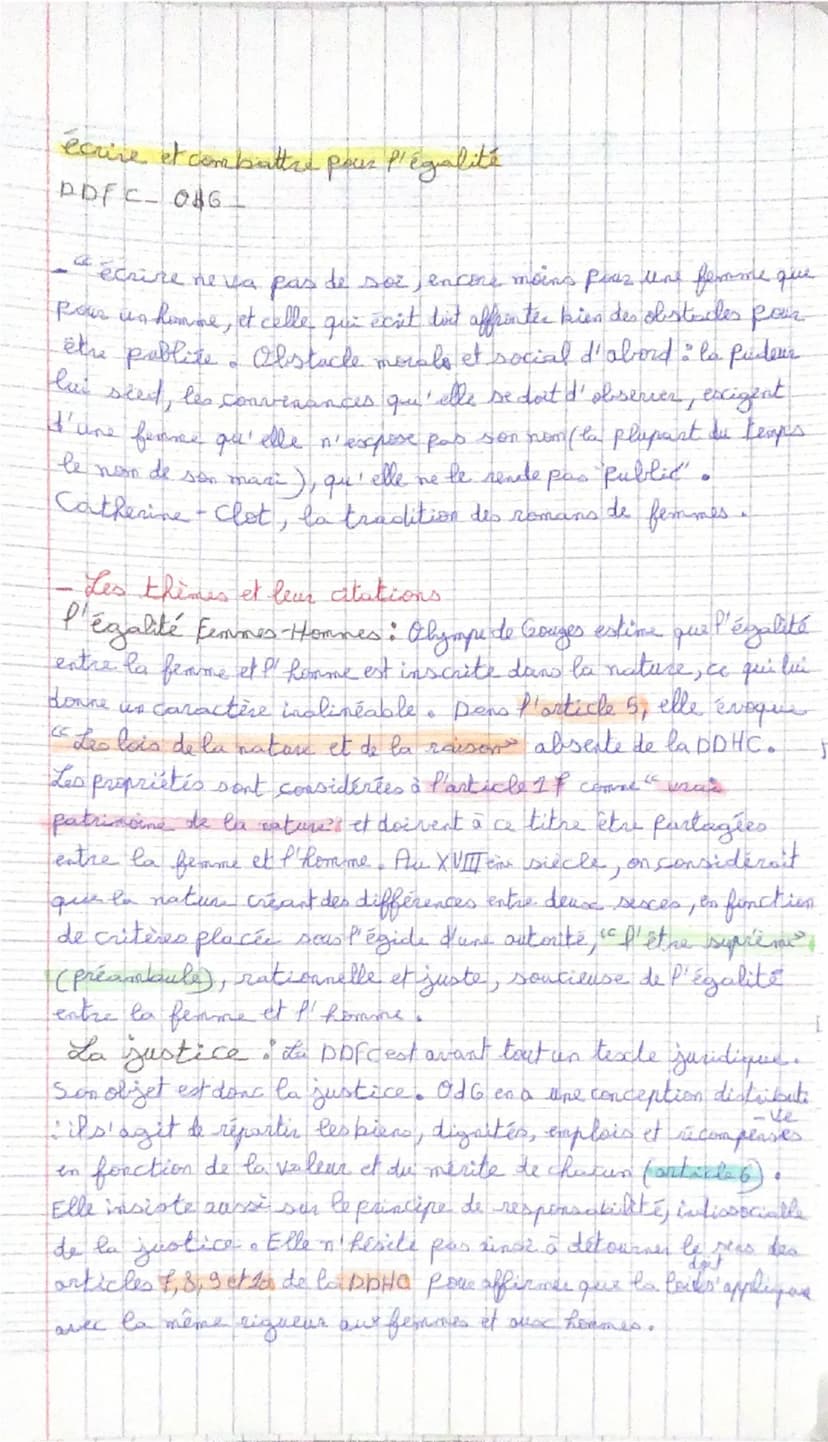 écrire et combattre pour l'égalité
DDFC - OdG -
- "écrire ne va pas de soi, encore moins pour une femme que
pour un homme, et celle qui écrit doit affronter bien des obstacles pour
être publiée. Obstacle morale et social d'abord : la pudeur
lui sied, les convenances qu'elle se doit d'observer, exigent
d'une femme qu'elle n'expose pas son nom (la plupart du temps
le nom de son mari), qu'elle ne le rende pas "public".
Catherine - Clot, la tradition des romans de femmes.
- Les thèmes et leur citations
l'égalité Femmes-Hommes : Olympe de Gouges estime que l'égalité
entre la femme et l'homme est inscrite dans la nature, ce qui lui
donne un caractère inalinéable. Dans l'article 5, elle évoque
"Les lois de la nature et de la raison" absente de la DDHC.
Les propriétés sont considérées à l'article 17 comme "vrai
patrimoine de la nature" et doivent à ce titre être partagées
entre la femme et l'homme. Au XVIII ème siècle, on considérait
que la nature créant des différences entre deux sexes, en fonction
de critères placée sous l'égide d'une autorité, "l'être suprême"
(préambule), rationnelle et juste, soucieuse de l'égalité
entre la femme et l'homme.
La justice : La DDFC est avant tout un texte juridique.
Son objet est donc la justice. OdG en a une conception distributi
-ve
: il s'agit de répartir les biens, dignités, emplois et récompenses
en fonction de la valeur et du mérite de chacun (article 6).
Elle insiste aussi sur le principe de responsabilité, indissociable
de la justice. Elle n'hésite pas ainsi à détourner le sens des
articles 7, 8, 9 et 10 de la DDHC pour affirmer que la loi doit s'appliquer
avec la même rigueur aux femmes et aux hommes.